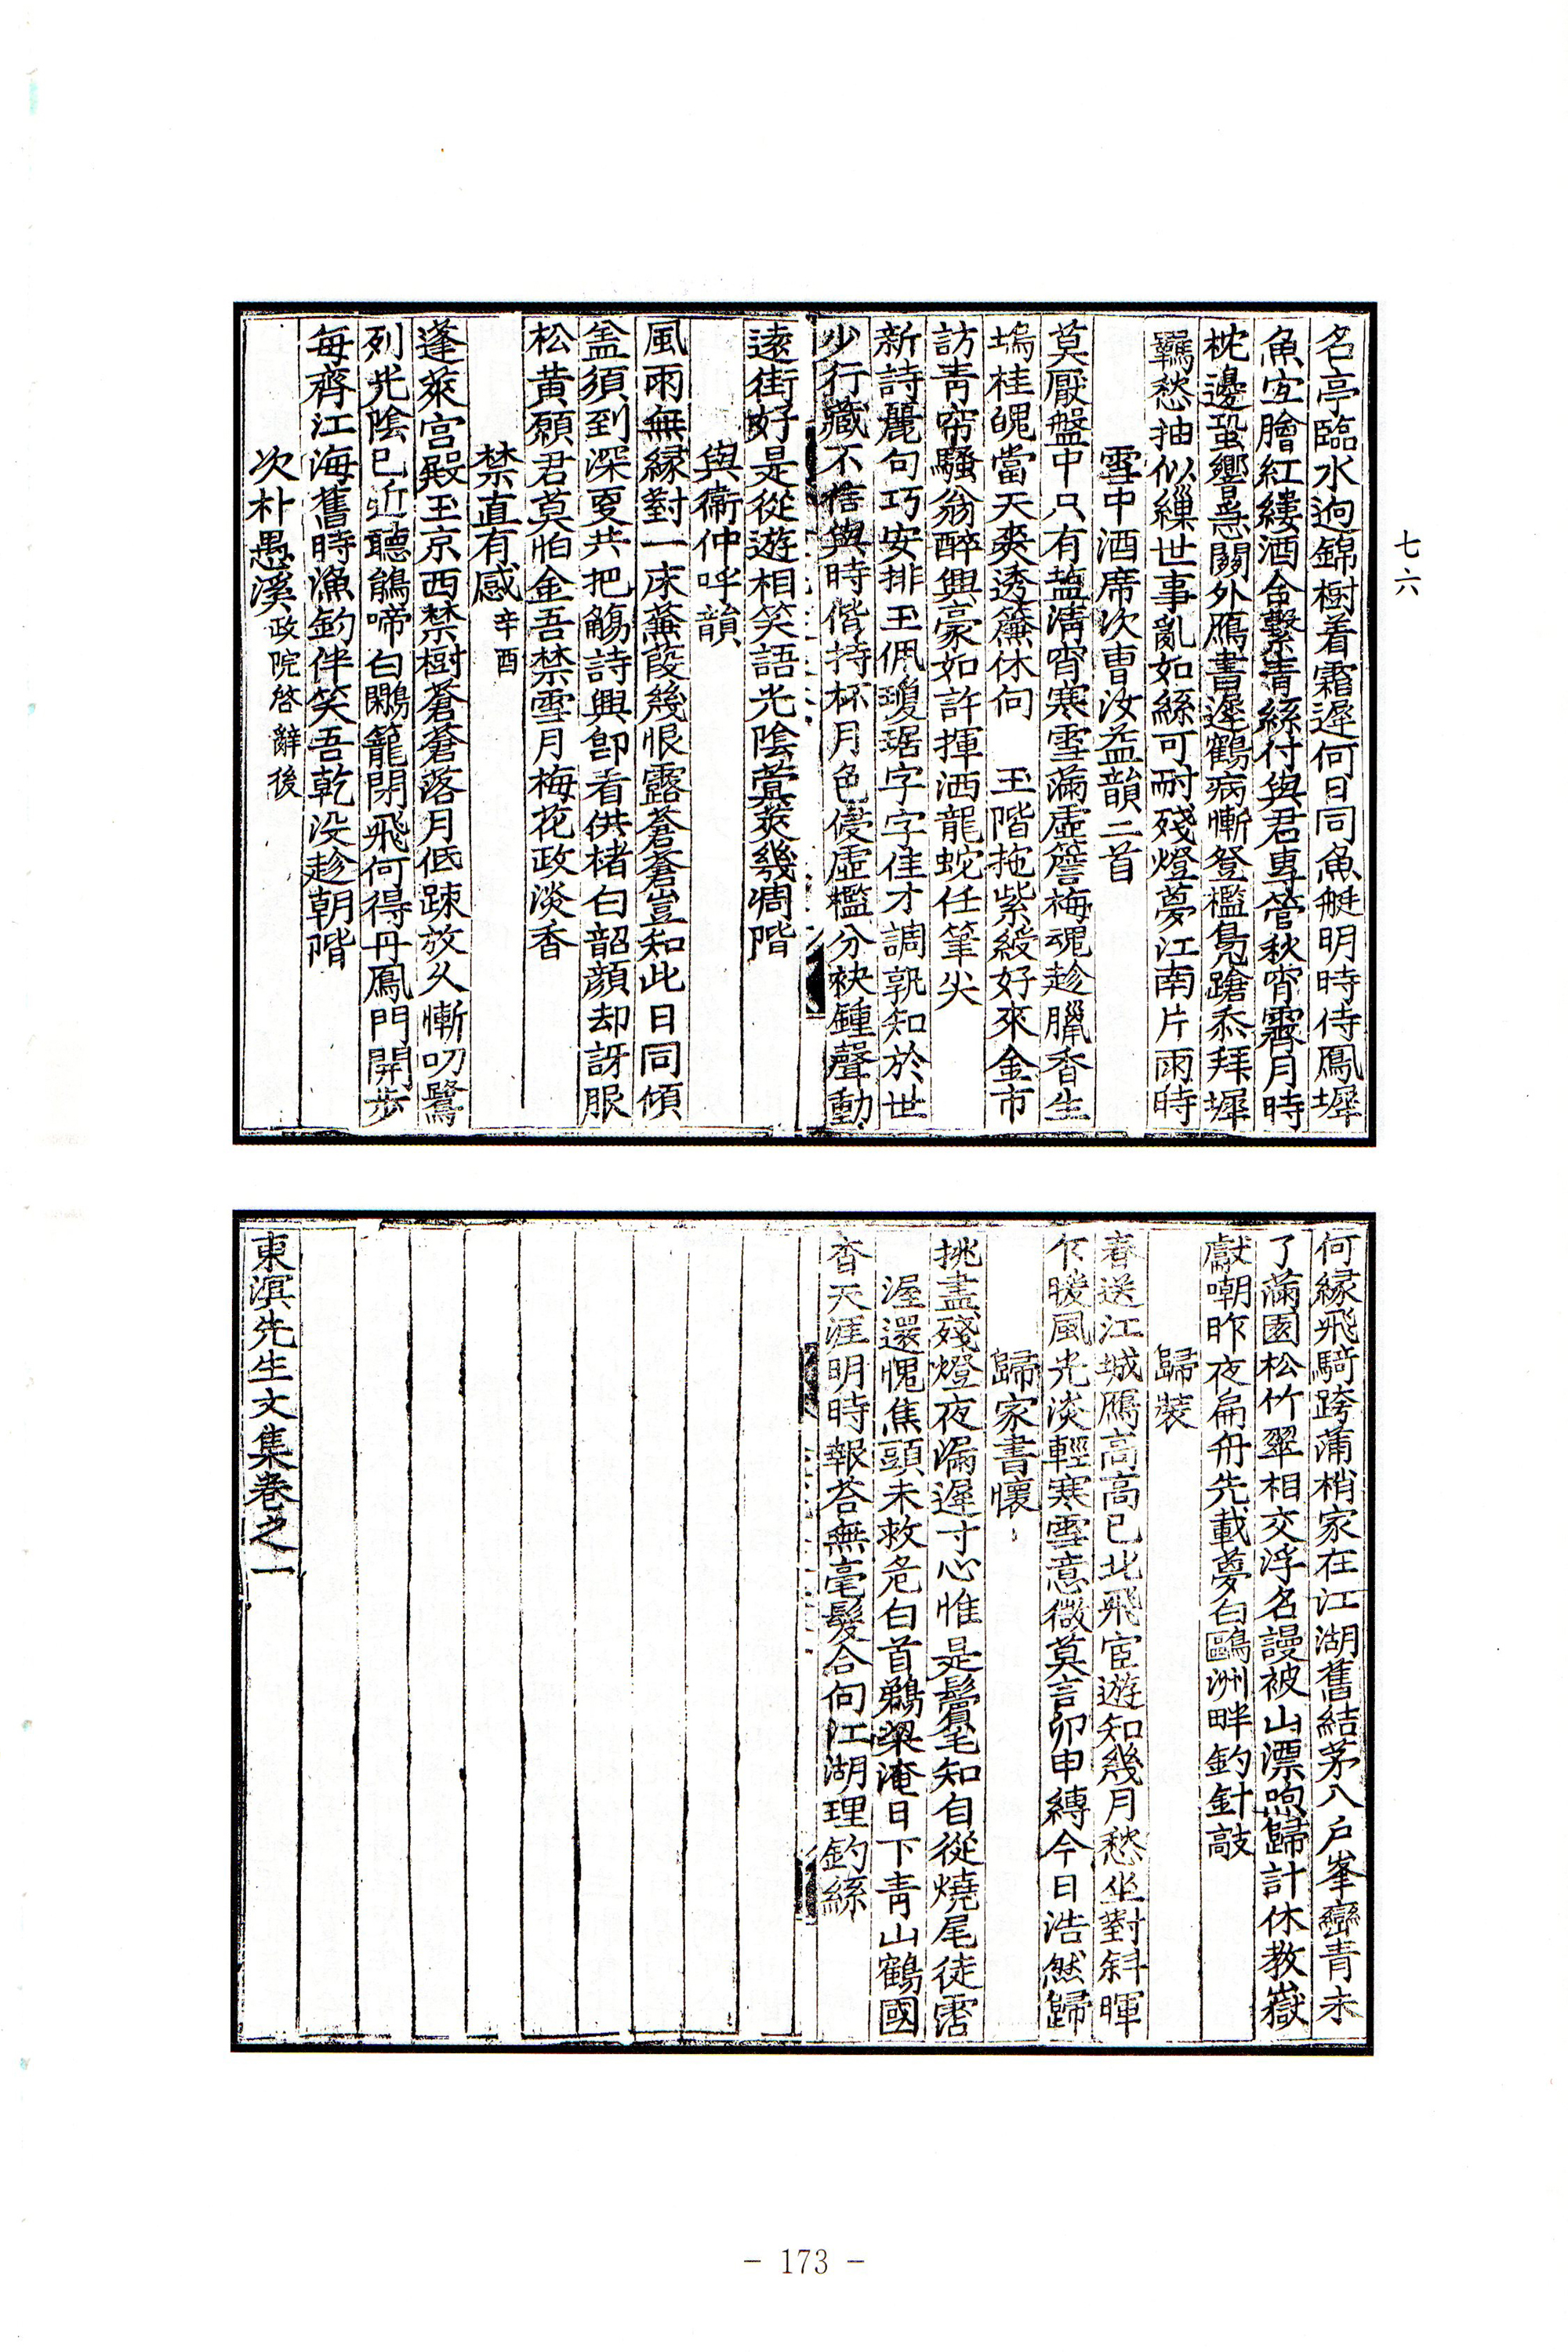 七六
名亭臨水逈錦樹着霜遲何日同魚艇明時侍鳳墀
魚宜膾紅縷酒合繫青絲付與君專管秋宵霽月時
枕邊蛩響急關外鴈書遲鶴病慚登檻鳧蹌忝拜墀
羈愁抽似繅世事亂如絲可耐殘燈夢江南片雨時
雪中酒席次曺汝益韻二首
莫厭盤中只有塩淸宵寒雪滿虛簷梅魂趁臘香生
塢桂魄當天爽透簾休向 玉階拖紫綬好來金市
訪靑帘騷翁醉興豪如許揮洒龍蛇任筆尖
新詩麗句巧安排玉佩瓊琚字字佳才調孰知於世
少行藏不信與時偕持杯月色侵虛檻分袂鍾聲動
遠街好是從遊相笑語光陰蓂莢幾凋階
與衛仲呼韻
風雨無緣對一床蒹葭幾恨露蒼蒼豈知此日同傾
盖須到深更共把觴詩興卽看供楮白韶顔却訝服
松黃願君莫怕金吾禁雪月梅花政淡香
禁直有感 辛酉
蓬萊宮殿玉京西禁樹蒼蒼落月低踈放久慚叨鷺
列光陰已近聽鵑啼白鷴籠閉飛何得丹鳳門開步
每齊江海舊時漁釣伴笑吾乾沒趁朝階
次朴愚溪 政院啓辭後
何緣飛騎跨蒲梢家在江湖舊結茅入戶峯巒青未
了滿園松竹翠相交浮名謾被山漂喣歸計休教嶽
獻嘲昨夜扁舟先載夢白鷗洲畔釣針敲
歸裝
春送江城鴈高高已北飛宦遊知幾月愁坐對斜暉
乍暖風光淡輕寒雪意微莫言卯申縛今日浩然歸
歸家書懷
挑盡殘燈夜漏遲寸心惟是鬢毛知自從燒尾徒霑
渥還愧焦頭未救危白首鵷梁淹日下靑山鶴國
杳天涯明時報荅無毫髮合向江湖理釣絲
東溟先生文集卷之一
- 173 -